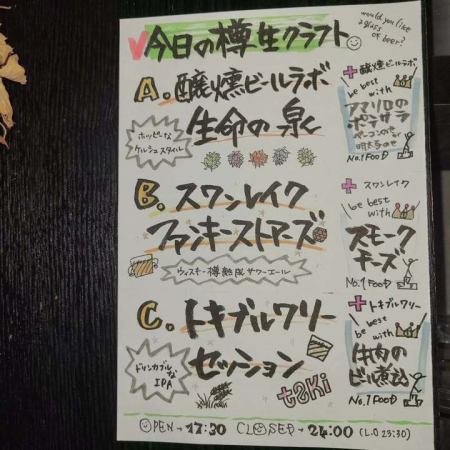 今日の樽生クラフト
would you like
a glass
of beer?
A. 醸燻ビールラボ
生命の泉
ホッピーな
ケルシュスタイル
+ 醸燻ビールラボ
be best
with
アマリロの
ポテサラ
ベーコンのせ or
明太のせ
No.1 FOOD
B. スワンレイク
ファンキーストアーズ
ウィスキー樽熟成サワーエール
+ スワンレイク
be best
with
スモーク
チーズ
No.1 FOOD
C. トキブルワリー
セッション
ドリンカブルな
IPA
toki
+ トキブルワリー
be best
with
牛肉の
ビール煮込
No.1 FOOD
OPEN → 17:30 CLOSED → 24:00 (L.O 23:30)